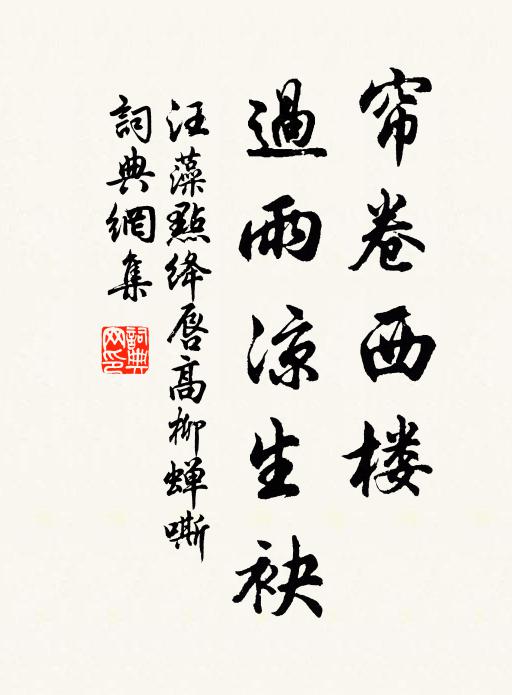 帘卷西楼
過雨凉生袂
汪藻點絳唇高柳蟬嘶
詞典網集
詞典
网印